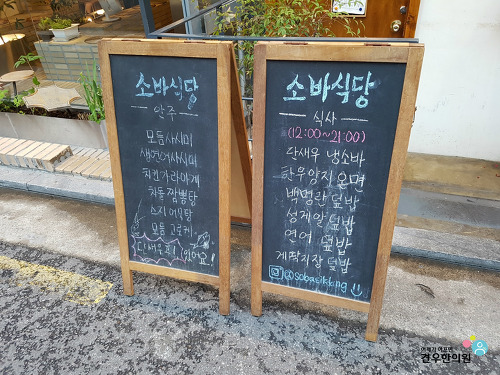 소바식당
안주
모듬사시미
생연어사시미
치킨가라아게
차돌짬뽕탕
스지어묵탕
모듬 고로케
다새우회 있어요!
소바식당
식사
(12:00~21:00)
다새우 냉소바
한우양지온면
백명란 덮밥
성게알 덮밥
연어 덮밥
게딱지장 덮밥
@sobasikdang
견우한의원